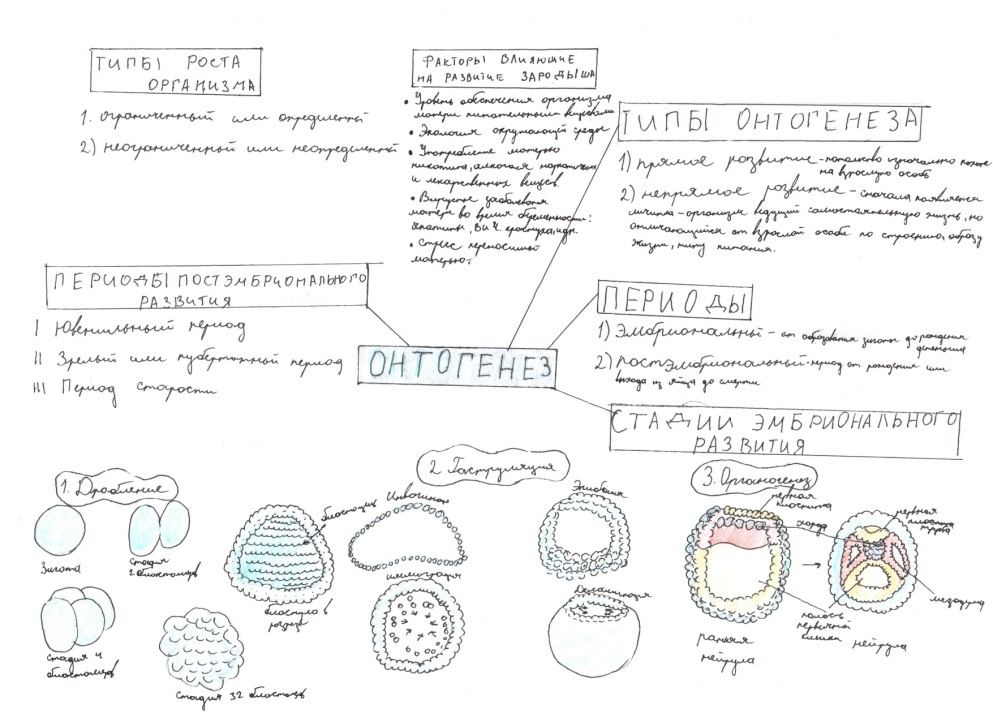 ТИПЫ РОСТА
ОРГАНИЗМА
1. ограниченный или определенный
2) неограниченный или неопределенный
ФАКТОРЫ ВЛИЯЮЩИЕ
НА РАЗВИТИЕ ЗАРОДЫША
• Уровень обеспечения организма
матери питательными веществами
• Экология окружающей среды
• Употребление матерью
никотина, алкоголя наркотических
и лекарственных веществ.
• Вирусные заболевания
матери во время беременности:
гепатиты, ВИЧ. краснуха, идр.
• Стресс переносимый
матерью.
ТИПЫ ОНТОГЕНЕЗА
1) прямое развитие - потомство изначально похоже
на взрослую особь
2) непрямое развитие - сначала появляется
личинка - организм ведущий самостоятельную жизнь, но
отличающийся от взрослой особи по строению, образу
жизни, типу питания.
ПЕРИОДЫ ПОСТЭМБРИОНАЛЬНОГО
РАЗВИТИЯ
I Ювенильный период
II Зрелый или пубертатный период
III Период старости
ОНТОГЕНЕЗ
ПЕРИОДЫ
1) Эмбриональный - от образования зиготы до рождения
детеныша
2) постэмбриональный - период от рождения или
выхода из яйца до смерти
СТАДИИ ЭМБРИОНАЛЬНОГО
РАЗВИТИЯ
1. Дробление
Зигота
стадия
2 бластомеров
стадия 4
бластомеров
Стадия 32
бластула в
разрезе
2 Гаструляция
Инвагинация
иммиграция
Эпиболия
Деламинация
3. Органогенез
нервная
пластинка
хорда
ранняя
нейрула
нервная
трубка
мезодерма
полость
первичной
кишки
нейрула